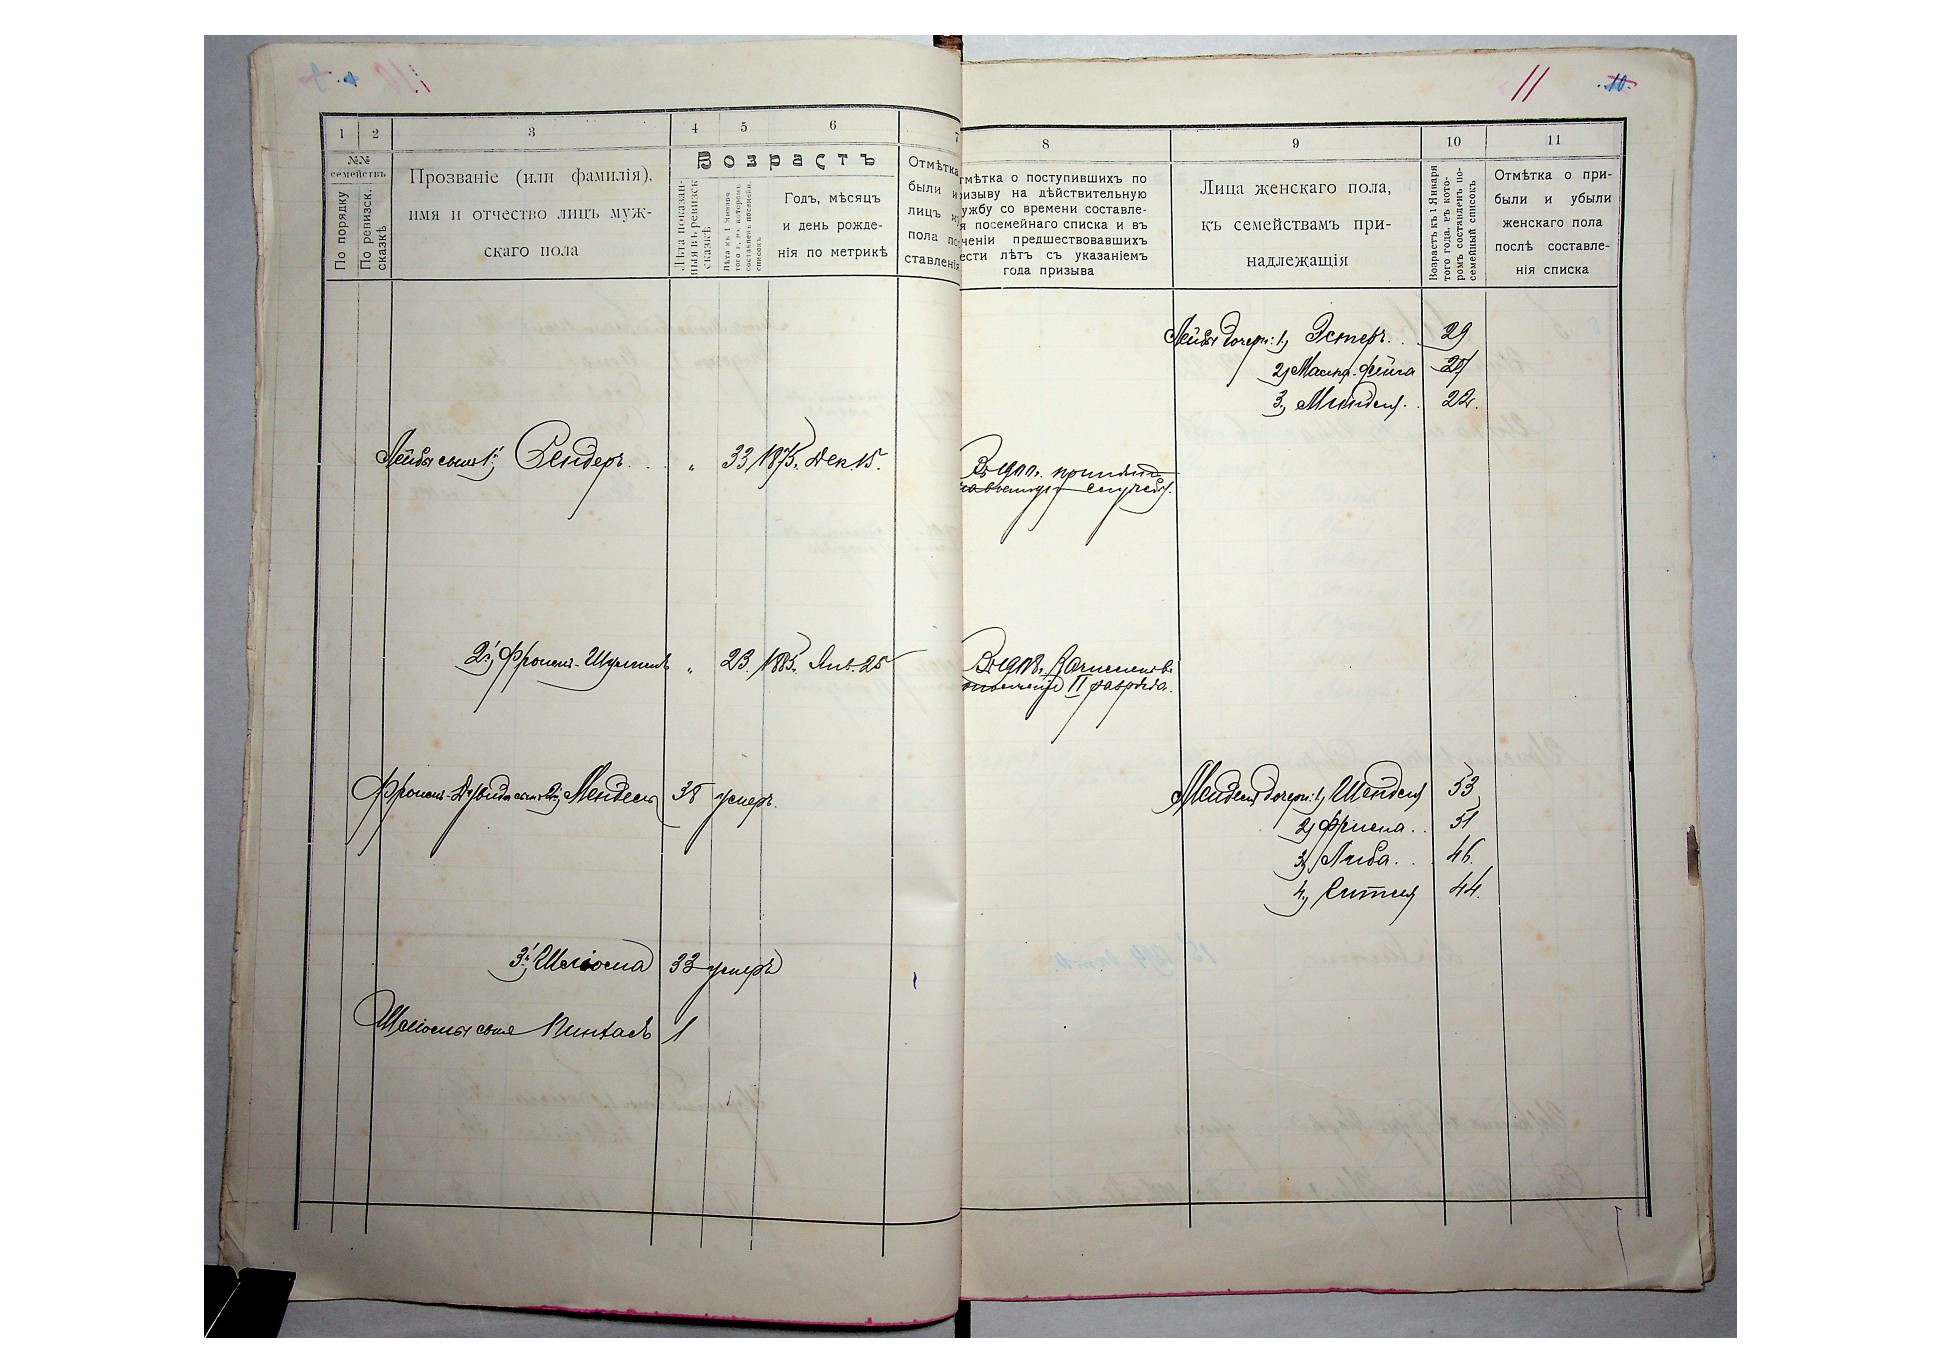 11 10
1 2 3 4 5 6 7
№№ семействъ
По порядку
По ревизск. сказкѣ
Прозваніе (или фамилія),
имя и отчество лицъ муж-
скаго пола
Возрастъ
Лѣта показан-
ныя въ ревизск
сказкѣ
Лѣта къ 1 Января
того г., въ которомъ
составленъ посемейн.
списокъ
Годъ, мѣсяцъ
и день рожде-
нія по метрикѣ
Отмѣтка
были и
лицъ
пола по
ставленія
8 9 10 11
мѣтка о поступившихъ по
ризыву на дѣйствительную
ужбу со времени составле-
я посемейнаго списка и въ
ченіи предшествовавшихъ
ести лѣтъ съ указаніемъ
года призыва
Лица женскаго пола,
къ семействамъ при-
надлежащія
Возрастъ къ 1 Января
того года, въ кото-
ромъ составленъ по-
семейный списокъ
Отмѣтка о при-
были и убыли
женскаго пола
послѣ составле-
нія списка
Лейбы дочери: 1, Эстеръ. . 29
2, Фейга 27
3, Миндля. . 22.
Лейбы сынъ 1, Сендеръ. . . „ 33 1875. Дек 15.
Въ
службу.
2, Фроимъ-Шулимъ „ 23. 1885. Янв. 25
Въ Зачисленъ въ
ополченіе II разряда.
Фроимъ-Давида сынъ 2, Мендель 38 умеръ.
Менделя дочери: 1, Шендля 53
2, Фрима. . 51
3, Либа. . . 46.
4, 44.
3, Шліома 33 умеръ
Шліомы сынъ Пинхасъ 1